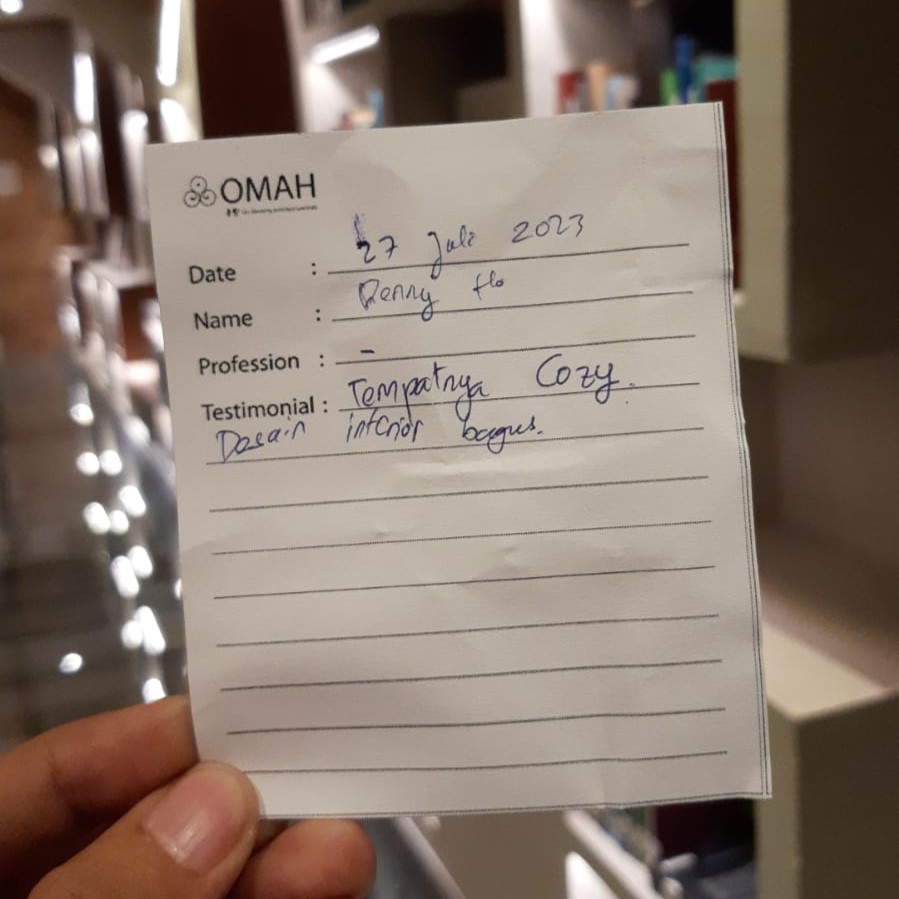 OMAH
Date : 27 Juli 2023
Name : Denny flo
Profession : -
Testimonial : Tempatnya Cozy.
Desain interior bagus.